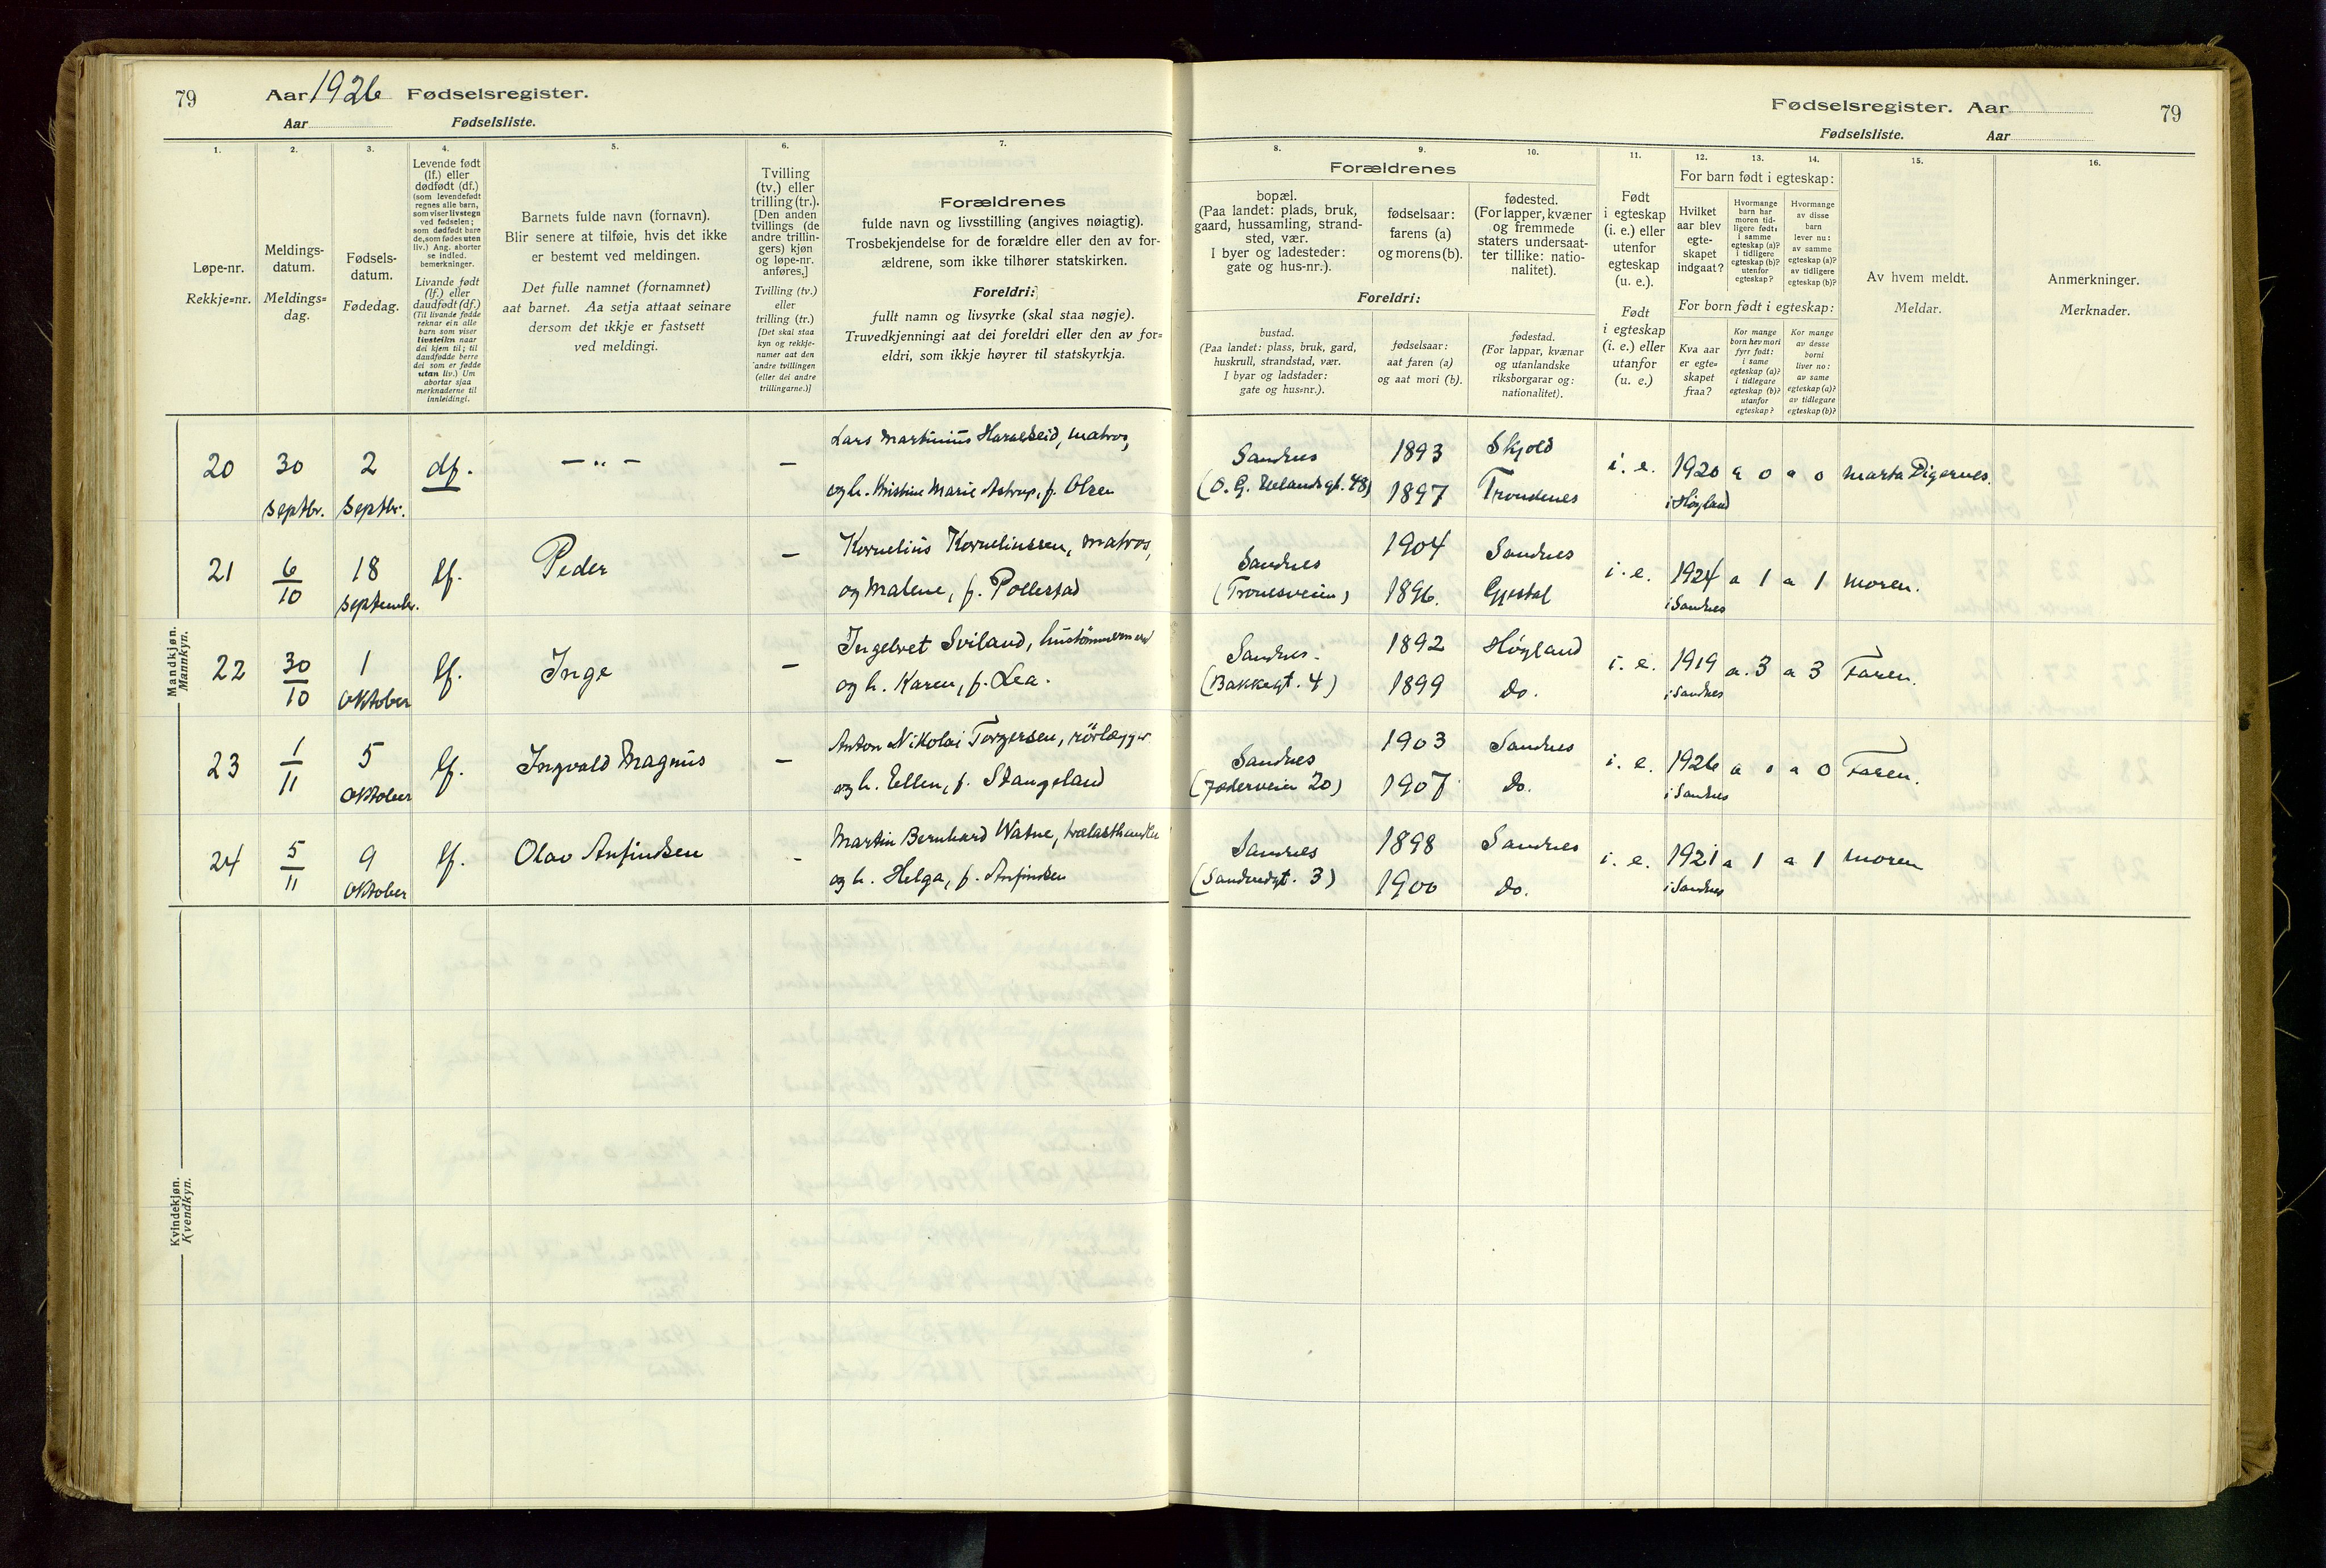 79
Aar 1926 Fødselsregister.
Aar Fødselsliste.
1.
2.
3.
4.
5.
6.
7.
Løpe-nr.
Rekkje=nr.
Meldings-
datum.
Meldings=
dag.
Fødsels-
datum.
Fødedag.
Levende født
(lf.) eller
dødfødt (df.)
(som levendefødt
regnes alle barn,
som viser livstegn
ved fødselen;
som dødfødt bare
de, som fødes uten
liv.) Ang. aborter
se indled.
bemerkninger.
Livande født
(lf.) eller
daudfødt (df.)
(Til livande fødde
reknar ein alle
barn som viser
livsteikn naar
dei kjem til; til
daudfødde berre
dei som er fødde
utan liv.) Um
abortar sjaa
merknaderne til
innleidingi.
Barnets fulde navn (fornavn).
Blir senere at tilføie, hvis det ikke
er bestemt ved meldingen.
Det fulle namnet (fornamnet)
aat barnet. Aa setja attaat seinare
dersom det ikkje er fastsett
ved meldingi.
Tvilling
(tv.) eller
trilling (tr.).
[Den anden
tvillings (de
andre trillin-
gers) kjøn
og løpe-nr.
anføres.]
Tvilling (tv.)
eller
trilling (tr.)
[Det skal staa
kyn og rekkje-
numer aat den
andre tvillingen
(eller dei andre
trillingarne.)]
Forældrenes
fulde navn og livsstilling (angives nøiagtig).
Trosbekjendelse for de forældre eller den av for-
ældrene, som ikke tilhører statskirken.
Foreldri:
fullt namn og livsyrke (skal staa nøgje).
Truvedkjenningi aat dei foreldri eller den av for=
eldri, som ikkje høyrer til statskyrkja.
Fødselsregister. Aar
79
Fødselsliste. Aar
8.
9.
10.
11.
12.
13.
14.
15.
16.
Forældrenes
bopæl.
(Paa landet: plads, bruk,
gaard, hussamling, strand-
sted, vær.
I byer og ladesteder:
gate og hus-nr.).
fødselsaar:
farens (a)
og morens (b).
fødested.
(For lapper, kvæner
og fremmede
staters undersaat-
ter tillike: natio-
nalitet).
Foreldri:
bustad.
(Paa landet: plass, bruk, gard,
huskrull, strandstad, vær.
I byar og ladstader:
gate og hus=nr.).
fødselsaar:
aat faren (a)
og aat mori (b).
fødestad.
(For lappar, kvænar
og utanlandske
riksborgarar og:
nationalitet).
Født
i egteskap
(i. e.) eller
utenfor
egteskap
(u. e.).
Født
i egteskap
(i. e.) eller
utanfor
(u. e.)
For barn født i egteskap:
Hvilket
aar blev
egte-
skapet
indgaat?
Hvormange
barn har
moren tid-
ligere født:
i samme
egteskap (a)?
i tidligere
egteskap (b)?
utenfor
egteskap?
Hvormange
av disse
barn
lever nu:
av samme
egteskap (a)?
av tidligere
egteskap (b)?
For born født i egteskap:
Kva aar
er egte=
skapet
fraa?
Kor mange
born hev mori
fyrr født:
i same
egteskap (a)?
i tidlegare
egteskap (b)?
utanfor
egteskap?
Kor mange
av desse
borni
liver no:
av same
egteskap (a)?
av tidlegare
egteskap (b)?
Av hvem meldt.
Meldar.
Anmerkninger.
Merknader.
Mandkjøn.
Mannkyn.
20 30 septbr. 2 Septbr. df. — „ — —
Lars Martinius Haraldseid, matros,
og h. Kristine Marie Astrup, f. Olsen
Sandnes (O. G. Uelandsgt. 48) 1893 1897 Skjold Trondenes i. e. 1920 i Høyland a 0 a 0 Marta Digernes.
21 6/10 18 September. lf. Peder —
Kornelius Korneliussen, matros,
og Malene, f. Pollestad
Sandnes (Tronesveien) 1904 1896. Sandnes Gjestal i. e. 1924 i Sandnes a 1 a 1 moren.
22 30/10 1 Oktober lf. Inge —
Ingebret Sviland, hustømmermand
og h. Karen, f. Lea.
Sandnes. (Bakkegt. 4) 1892 1899 Høyland do. i. e. 1919 i Sandnes a. 3 a 3 Faren.
23 1/11 5 Oktober lf. Ingvald Magnus —
Anton Nikolai Torgersen, rörlægger
og h. Ellen, f. Stangeland
Sandnes (Jæderveien 20) 1903 1907 Sandnes do. i. e. 1926 i Sandnes a 0 a 0 Faren.
24 5/11 9 Oktober lf. Olav Anfindsen -
Martin Bernhard Watne, trælasthandler
og h. Helga, f. Anfindsen
Sandnes (Sandvedgt. 3) 1898 1900 Sandnes do. i. e. 1921 i Sandnes a 1 a 1 moren
Kvindekjøn.
Kvendkyn.